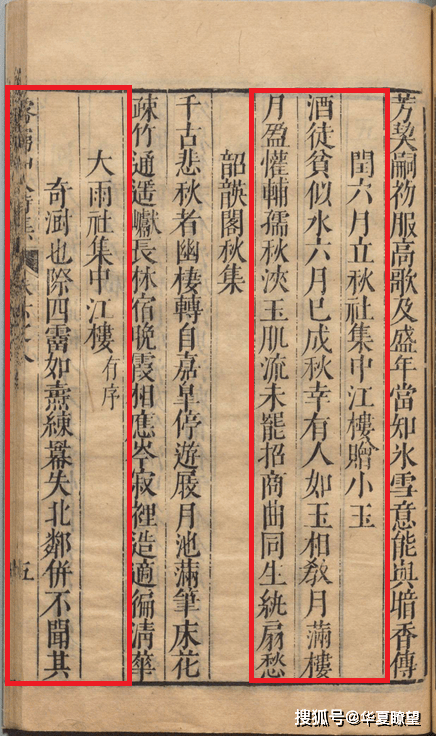 芳契嗣初服高歌及盛年當知氷雪意能與暗香傳
閏六月立秋社集中江樓贈小玉
酒徒貧似水六月已成秋幸有人如玉相敎月滿樓
月盈懽輔孺秋浹玉肌流未罷招商曲同生紈扇愁
韶韺閣秋集
千古悲秋者幽棲轉自嘉皐停遊屐月池滿筆床花
疎竹通遥巘長林宿晚霞相應岑寂裡造適徧清華
大雨社集中江樓有序
奇溽也際四霤如燾練幕失北鄰併不聞其
五
搜狐号@华夏瞭望